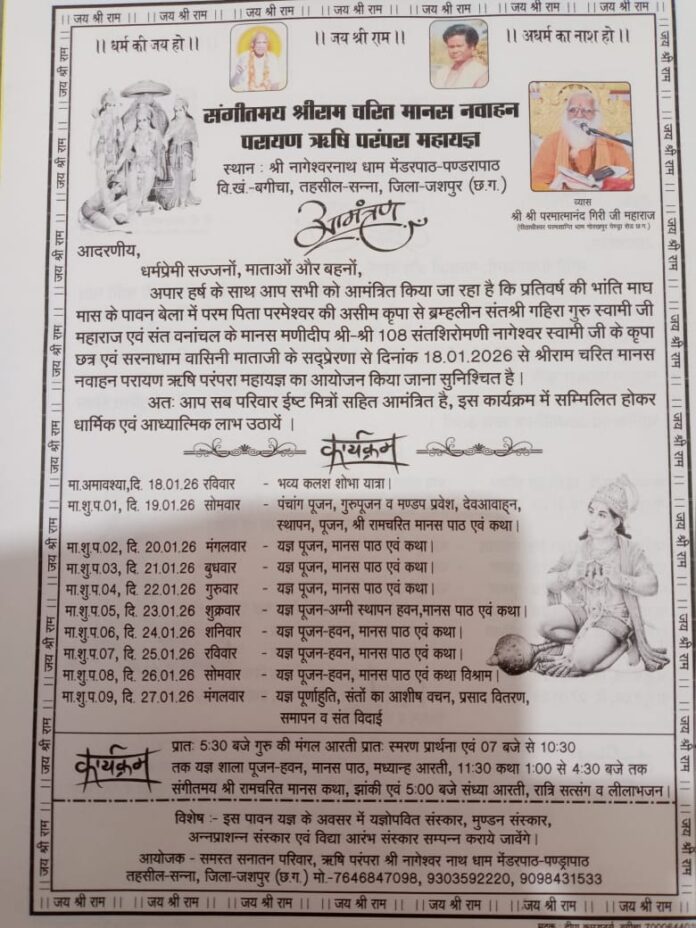 || जय श्री राम || जय श्री राम || जय श्री राम || जय श्री राम || जय श्री राम || जय श्री राम || जय श्री राम ||
|| धर्म की जय हो ||
|| जय श्री राम ||
|| अधर्म का नाश हो ||
संगीतमय श्रीराम चरित मानस नवाहन
परायण ऋषि परंपरा महायज्ञ
स्थान : श्री नागेश्वरनाथ धाम मेंडरपाठ-पण्डरापाठ
वि.खं.-बगीचा, तहसील-सन्ना, जिला-जशपुर (छ.ग.)
व्यास
श्री श्री परमात्मानंद गिरी जी महाराज
आमंत्रण
आदरणीय,
धर्मप्रेमी सज्जनों, माताओं और बहनों,
अपार हर्ष के साथ आप सभी को आमंत्रित किया जा रहा है कि प्रतिवर्ष की भांति माघ
मास के पावन बेला में परम पिता परमेश्वर की असीम कृपा से ब्रम्हलीन संतश्री गहिरा गुरु स्वामी जी
महाराज एवं संत वनांचल के मानस मणीदीप श्री-श्री 108 संतशिरोमणी नागेश्वर स्वामी जी के कृपा
छत्र एवं सरनाधाम वासिनी माताजी के सद्प्रेरणा से दिनांक 18.01.2026 से श्रीराम चरित मानस
नवाहन परायण ऋषि परंपरा महायज्ञ का आयोजन किया जाना सुनिश्चित है |
अतः आप सब परिवार ईष्ट मित्रों सहित आमंत्रित है, इस कार्यक्रम में सम्मिलित होकर
धार्मिक एवं आध्यात्मिक लाभ उठायें |
कार्यक्रम
मा.अमावश्या,दि. 18.01.26 रविवार - भव्य कलश शोभा यात्रा |
मा.शु.प.01, दि. 19.01.26 सोमवार - पंचांग पूजन, गुरुपूजन व मण्डप प्रवेश, देवआवाहन,
स्थापन, पूजन, श्री रामचरित मानस पाठ एवं कथा |
मा.शु.प.02, दि. 20.01.26 मंगलवार - यज्ञ पूजन, मानस पाठ एवं कथा |
मा.शु.प.03, दि. 21.01.26 बुधवार - यज्ञ पूजन, मानस पाठ एवं कथा |
मा.शु.प.04, दि. 22.01.26 गुरुवार - यज्ञ पूजन, मानस पाठ एवं कथा |
मा.शु.प.05, दि. 23.01.26 शुक्रवार - यज्ञ पूजन-अग्नी स्थापन हवन,मानस पाठ एवं कथा |
मा.शु.प.06, दि. 24.01.26 शनिवार - यज्ञ पूजन-हवन, मानस पाठ एवं कथा |
मा.शु.प.07, दि. 25.01.26 रविवार - यज्ञ पूजन-हवन, मानस पाठ एवं कथा |
मा.शु.प.08, दि. 26.01.26 सोमवार - यज्ञ पूजन-हवन, मानस पाठ एवं कथा विश्राम |
मा.शु.प.09, दि. 27.01.26 मंगलवार - यज्ञ पूर्णाहुति, संतों का आशीष वचन, प्रसाद वितरण,
समापन व संत विदाई
कार्यक्रम
प्रातः 5:30 बजे गुरु की मंगल आरती प्रातः स्मरण प्रार्थना एवं 07 बजे से 10:30
तक यज्ञ शाला पूजन-हवन, मानस पाठ, मध्यान्ह आरती, 11:30 कथा 1:00 से 4:30 बजे तक
संगीतमय श्री रामचरित मानस कथा, झांकी एवं 5:00 बजे संध्या आरती, रात्रि सत्संग व लीलाभजन |
विशेष :- इस पावन यज्ञ के अवसर में यज्ञोपवित संस्कार, मुण्डन संस्कार,
अन्नप्राशन्न संस्कार एवं विद्या आरंभ संस्कार सम्पन्न कराये जावेंगे |
आयोजक - समस्त सनातन परिवार, ऋषि परंपरा श्री नागेश्वर नाथ धाम मेंडरपाठ-पण्ड्रापाठ
तहसील-सन्ना, जिला-जशपुर (छ.ग.) मो.-7646847098, 9303592220, 9098431533
|| जय श्री राम || जय श्री राम || जय श्री राम || जय श्री राम || जय श्री राम || जय श्री राम || जय श्री राम ||